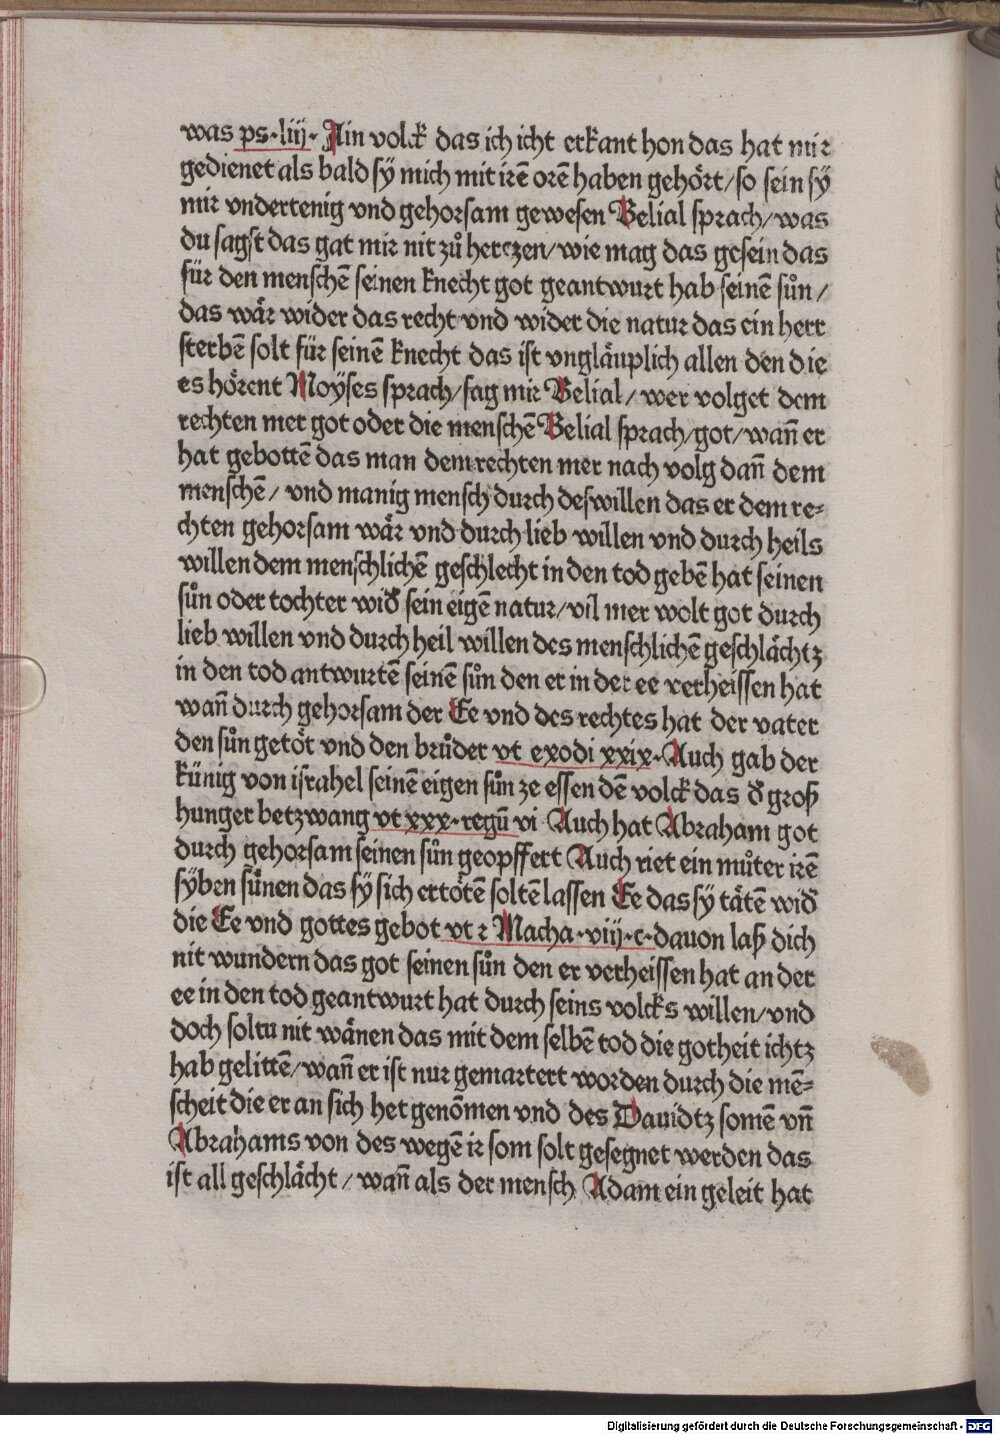 was ps·liij· Ain volck das ich icht erkant hon das hat mir
gedienet als bald sÿ mich mit irẽ orẽ haben gehört/so sein sÿ
mir vndertenig vnd gehorsam gewesen Belial sprach/was
du sagst das gat mir nit zů herczen/wie mag das gesein das
für den menschẽ seinen knecht got geantwurt hab seinẽ sůn/
das wär wider das recht vnd wider die natur das ein herr
sterbẽ solt für seinẽ knecht das ist vngläuplich allen den die
es hörent Moÿses sprach/sag mir Belial/wer volget dem
rechten mer got oder die menschẽ Belial sprach/got/wañ er
hat gebottẽ das man dem rechten mer nach volg dañ dem
menschẽ/vnd manig mensch durch deswillen das er dem re⸗
chten gehorsam wär vnd durch lieb willen vnd durch heils
willen dem menschlichẽ geschlecht in den tod gebẽ hat seinen
sůn oder tochter wid̕ sein eigẽ natur/vil mer wolt got durch
lieb willen vnd durch heil willen des menschlichẽ geschlächtz
in den tod antwurtẽ seinẽ sůn den er in der ee verheissen hat
wañ durch gehorsam der Ee vnd des rechtes hat der vater
den sůn getöt vnd den brůder vt exodi xxix· Auch gab der
künig von israhel seinẽ eigen sůn ze essen dẽ volck das d̕ groß
hunger betzwang vt xxx·regũ vi Auch hat Abraham got
durch gehorsam seinen sůn geopffert Auch riet ein můter irẽ
sÿben sünen das sÿ sich ertötẽ soltẽ lassen Ee das sÿ tätẽ wid̕
die Ee vnd gottes gebot vt 2 Macha·viij·c·dauon laß dich
nit wundern das got seinen sůn den er verheissen hat an der
ee in den tod geantwurt hat durch seins volcks willen/vnd
doch soltu nit wänen das mit dem selbẽ tod die gotheit ichtz
hab gelittẽ/wañ er ist nur gemartert worden durch die mẽ⸗
scheit die er an sich het genõmen vnd des Dauidtz somẽ vñ
Abrahams von des wegẽ ir som solt gesegnet werden das
ist all geschlächt/wañ als der mensch Adam ein geleit hat
Digitalisierung gefördert durch die Deutsche Forschungsgemeinschaft - DFG